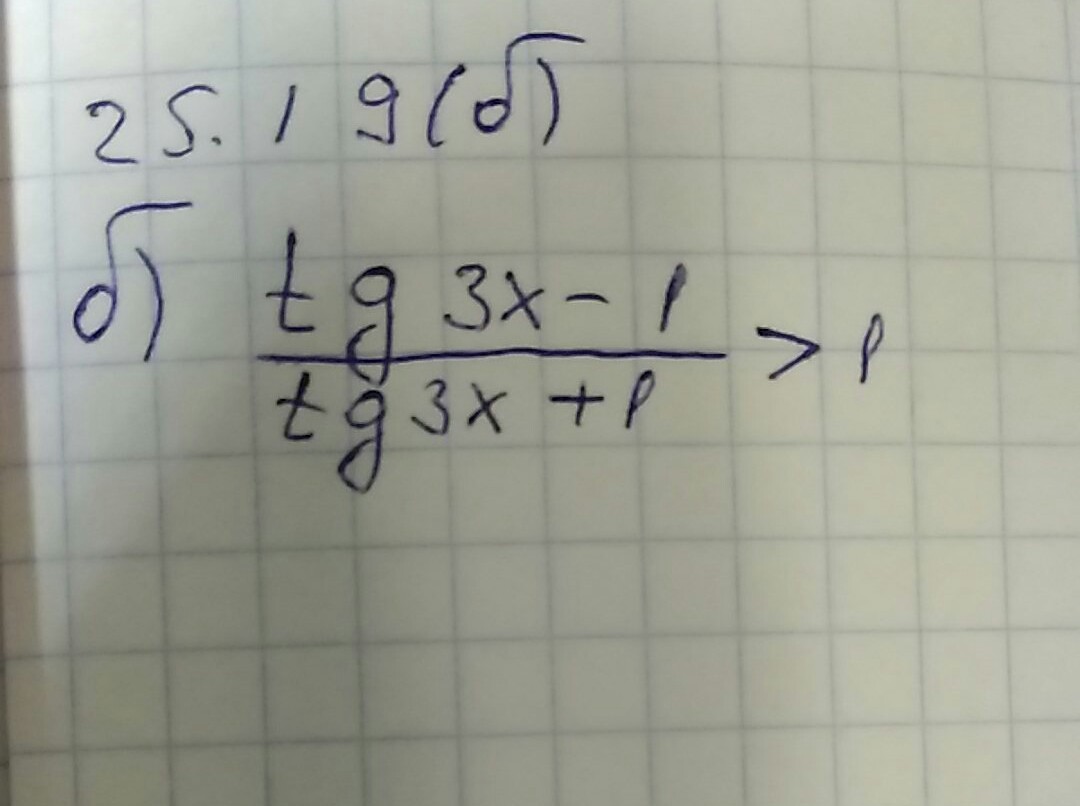 25.19(б)
б) tg 3x - 1
tg 3x + 1 > 1